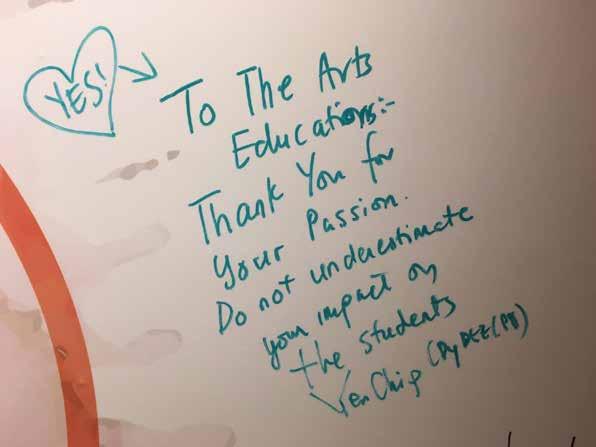 YES!
To The Arts
Educations:-
Thank You for
your Passion.
Do not underestimate
your impact on
the students